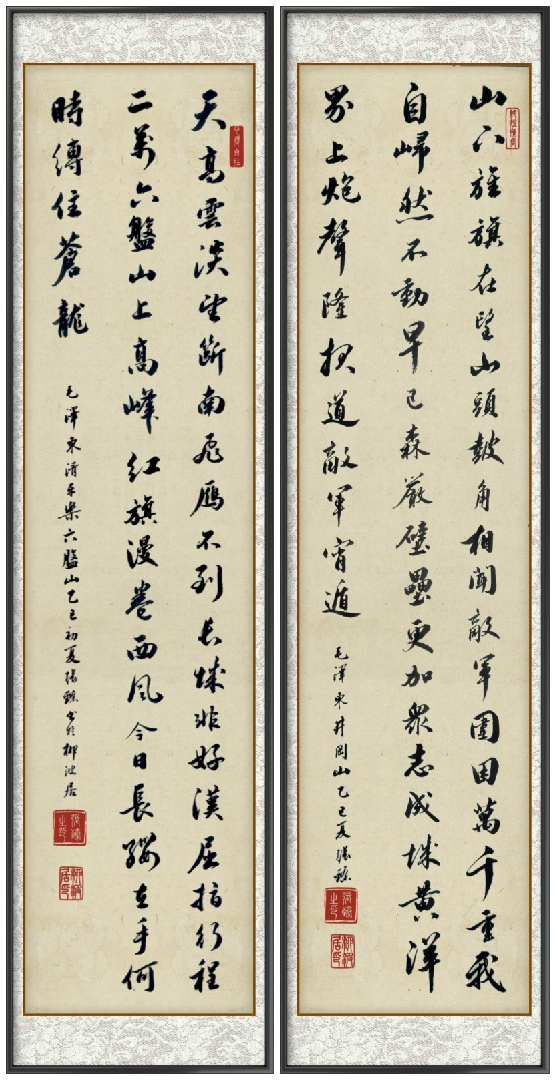 山下旌旗在望山頭鼓角相聞敵軍圍困萬千重我
自巋然不動早已森嚴壁壘更加眾志成城黃洋
界上炮聲隆報道敵軍宵遁
毛澤東井岡山乙巳夏張
天高雲淡望斷南飛鴈不到長城非好漢屈指行程
二萬六盤山上高峰紅旗漫卷西風今日長纓在手何
時縛住蒼龍
毛澤東清平樂六盤山乙巳初夏張書於柳居